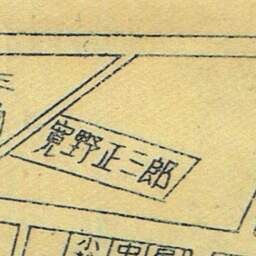 寛野正三郎